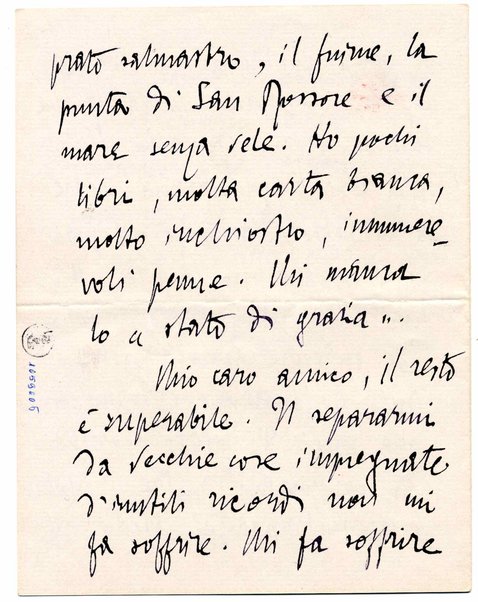 prato salmastro, il fiume, la
punta di San Rossore e il
mare senza vele. Ho pochi
libri, molta carta bianca,
molto inchiostro, innumere=
voli penne. Mi manca
lo « stato di grazia ».
Mio caro amico, il resto
è superabile. Il separarmi
da vecchie cose impregnate
d'inutili ricordi non mi
fa soffrire. Mi fa soffrire